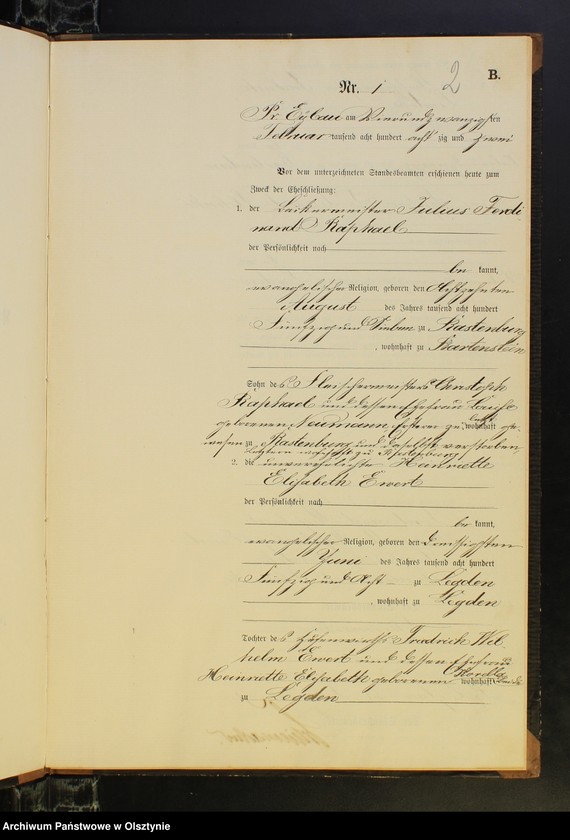 B.
2
Nr. 1
Pr. Eylau am Vierundzwanzigsten
Februar tausend acht hundert achtzig und zwei
Vor dem unterzeichneten Standesbeamten erschienen heute zum
Zweck der Eheschließung:
1. der Bäckermeister Julius Ferdi
nand Raphael
der Persönlichkeit nach
be kannt,
evangelischer Religion, geboren den Achtzehnten
August des Jahres tausend acht hundert
Fünfzig und Sieben zu Rastenburg
, wohnhaft zu Bartenstein
Sohn des Fleischermeisters Christoph
Raphael und dessen Ehefrau Louise
geborenen Neumann, ersterer zu wohnhaft ge
wesen zu Rastenburg und daselbst verstorben
letztere wohnhaft zu Rastenburg
2. die unverehelichte Henriette
Elisabeth Ewert
der Persönlichkeit nach
be kannt,
evangelischer Religion, geboren den dreissigsten
Juni des Jahres tausend acht hundert
Fünfzig und Acht zu Legden
, wohnhaft zu Legden
Tochter des Hufenwirths Friedrich Wil
helm Ewert und dessen Ehefrau
Henriette Elisabeth geborenen wohnhaft
zu Legden
Archiwum Państwowe w Olsztynie